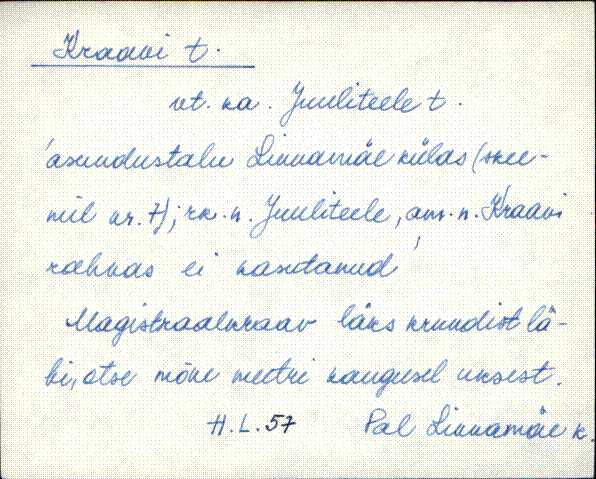 Kraavi t.
vt. ka. Juuliteele t.
'asundustalu Linnamäe külas (skee-
mil nr. 7); rk. n. Juuliteele, am. n. Kraavi
rahvas ei kasutanud'
Magistraalkraav läks krundist lä-
bi, otse mõne meetri kaugusel uksest.
H.L. 57 Pal Linnamäe k.